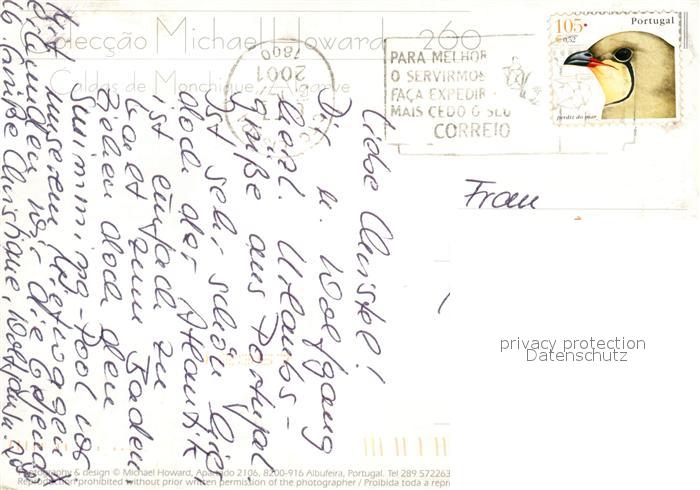 Colecção Michael Howard 260
Caldas de Monchique, Algarve
7800
2001
PARA MELHOR
O SERVIRMOS
FAÇA EXPEDIR
MAIS CEDO O SEU
CORREIO
105.
€ 0,52
Portugal
perdiz do mar
Liebe Christel!
Dir u. Wolfgang
herzl. Urlaubs-
grüße aus Portugal.
Ist sehr schön hier,
doch der Atlantik
ist einfach zu
kalt zum Baden
ziehen doch den
Swimming-Pool vor
Mit unserem Mietwagen
erkunden wir die Gegend
Grüße Christiane, Wolfgang
Frau
privacy protection
Datenschutz
Photography & design © Michael Howard, Apartado 2106, 8200-916 Albufeira, Portugal. Tel 289 572263
Reproduction prohibited without prior written permission of the photographer / Proibida toda a repr